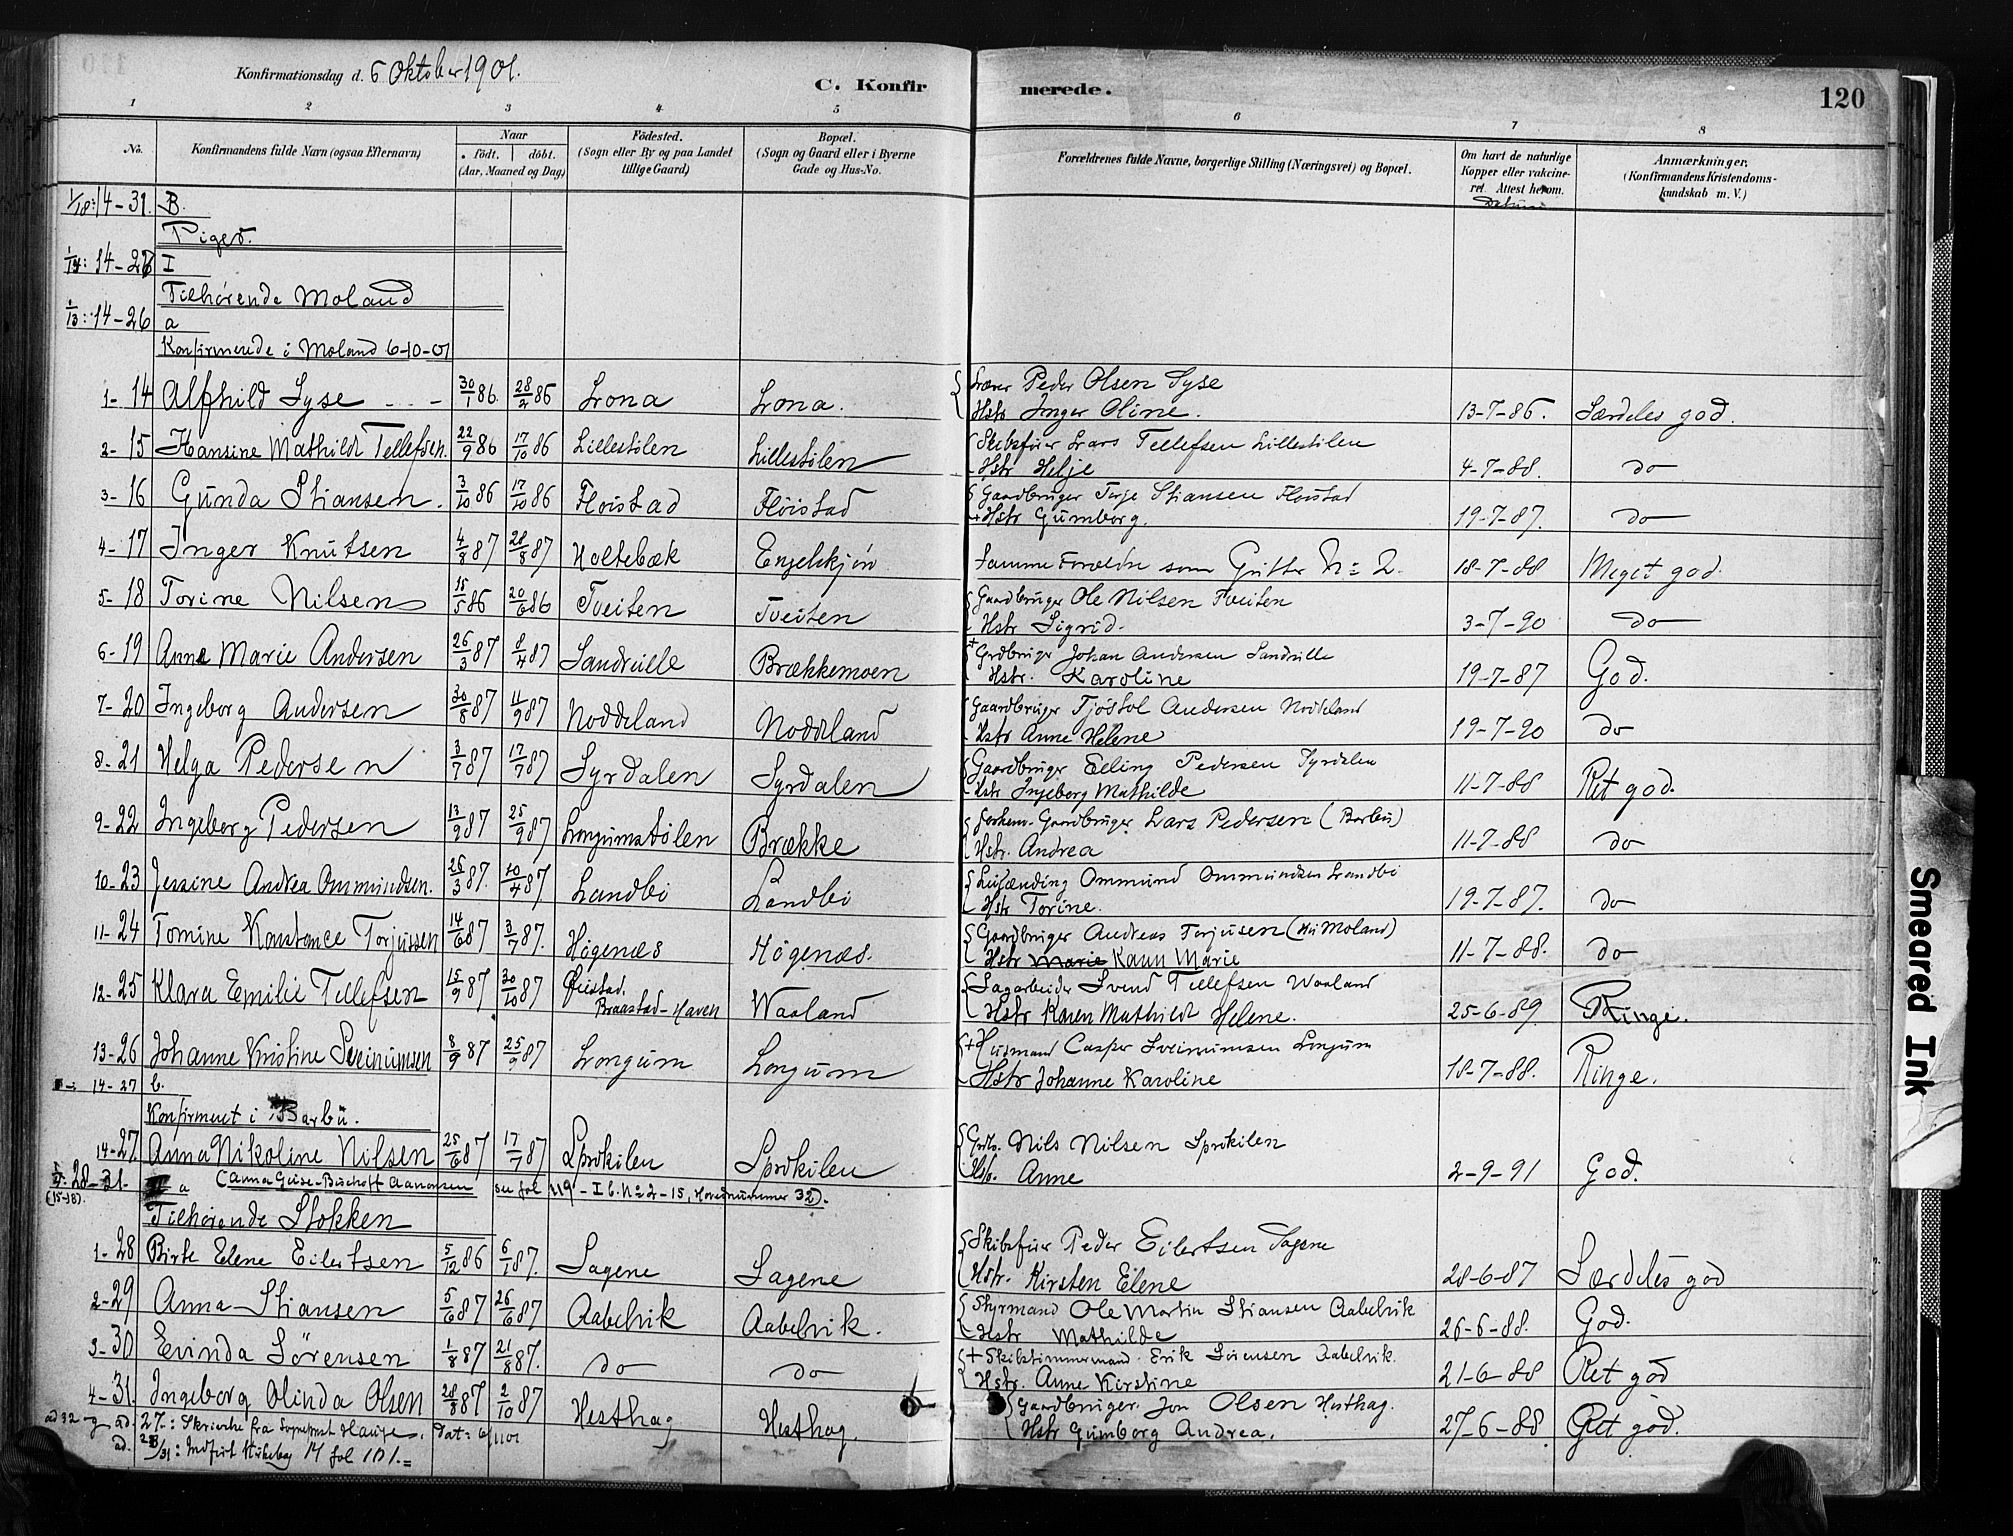 Konfirmationsdag d. 6 Oktober 1901.
C. Konfirmerede.
120
1 2 3 4 5 6 7 8
No.
Konfirmandens fulde Navn (ogsaa Efternavn)
Naar
født. | døbt.
(Aar, Maaned og Dag)
Fødested.
(Sogn eller By og paa Landet tillige Gaard)
Bopæl.
(Sogn og Gaard eller i Byerne Gade og Hus-No.
Forældrenes fulde Navne, borgerlige Stilling (Næringsvei) og Bopæl.
Om havt de naturlige Kopper eller vakcineret. Attest herom.
Datum
Anmærkninger.
(Konfirmandens Kristendomskundskab m. V.)
1/18: 14-31. B.
Piger.
14-27 I
Tilhørende Moland
1/13: 14-26 a
Konfirmerede i Moland 6-10-01
1-14 Alfhild Syse 30/1 86. 28/2 86 Lrona Lrona. Lærer Peder Olsen Syse
Hstr Inger Oline. 13-7-86. Særdeles god.
2-15 Hansine Mathilde Tellefsen. 22/9 86 17/10 86 Lillestølen Lillestølen Skibsfører Lars Tellefsen Lillestølen
Hstr Helje 4-7-88. do
3-16 Gunda Stiansen. 3/10 86 17/10 86 Fløistad Fløistad Gaardbruger Terje Stiansen Fløistad
+Hstr Gumborg. 19-7-87. do
4-17 Inger Knutsen 4/8 87 28/8 87 Holtebæk Engelskjøn Samme Forældre som Gutter No 2. 18-7-88 Meget god.
5-18 Torine Nilsen 15/5 86 20/6 86 Tveiten Tveiten Gaardbruger Ole Nilsen Tveiten
Hstr Sigrid. 3-7-90 do
6-19 Anne Marie Andersen 26/3 87 8/4 87 Sandville Brækkemoen +Grdbruger Johan Andersen Sandville
Hstr. Karoline 19-7-87 God.
7-20 Ingeborg Andersen 30/8 87 11/9 87 Noddeland Noddeland Gaardbruger Tjøstol Andersen Noddeland
Hstr Anne Helene 19-7-90 do
8-21 Helga Pedersen 3/7 87 17/7 87 Syrdalen Syrdalen Gaardbruger Elling Pedersen Syrdalen
Hstr Ingeborg Mathilde 11-7-88 Ret god.
9-22 Ingeborg Pedersen 13/9 87 25/9 87 Longumstølen Brække Forhen. Gaardbruger Lars Pedersen (Barbu)
Hstr. Andrea 11-7-88 do
10-23 Jensine Andrea Ommundsen. 26/3 87. 10/4 87 Landbø Landbø Ommund Ommundsen Landbø
Hstr Torine. 19-7-87. do
11-24 Tomine Konstance Torjussen 14/6 87 3/7 87. Høgenæs Høgenæs. Gaardbruger Andreas Torjusen (Moland)
Hstr Marie Karen Marie 11-7-88. do
12-25 Klara Emilie Tellefsen 15/9 87 30/10 87 Øiestad. Braastad-Haven Waaland Sagarbeider Svend Tellefsen Waaland
Hstr Karen Mathilde Helene. 25-6-89. Ringe.
13-26 Johanne Kristine Sveinumsen 8/9 87 25/9 87 Longum Longum +Husmand Casper Sveinumsen Longum
Hstr Johanne Karoline 18-7-88. Ringe.
14-27 b.
Konfirmeret i Barbu.
14-27 Anna Nikoline Nilsen 25/6 87 17/7 87 Sprøkilen Sprøkilen Grdb. Nils Nilsen Sprøkilen
Hstr. Anne 2-9-91 God.
28-31. (15-18). a (Anna Guse-Bischoff Aanonsen see fol 119 - I b. No 2-15, Hovednummer 32).
Tilhørende Stokken
1-28 Birte Elene Eilertsen 5/12 86 6/1 87. Sagene Sagene Skibsfører Peder Eilertsen Sagene
Hstr. Kirsten Elene 28-6-87 Særdeles god
2-29 Anna Stiansen 5/6 87 26/6 87 Aabelvik Aabelvik. Styrmand Ole Martin Stiansen Aabelvik
Hstr Mathilde 26-6-88. God.
3-30 Evinda Sørensen 1/8 87 21/8 87. do do +Skibstimmermand. Erik Sørensen Aabelvik.
Hstr. Anne Kirstine 21-6-88 Ret god
4-31. Ingeborg Olinda Olsen 28/8 87 2/10 87 Hesthag Hesthag. Gaardbruger. Jon Olsen Hesthag.
Hstr Gumborg Andrea. 27-6-88. Ret god.
ad 32 og ad. 27.: Skrivelse fra Sogneprest Hauge. Dat: 6/11 01
ad. 28/31: Indført Kirkebog M fol 101.=
Smeared Ink